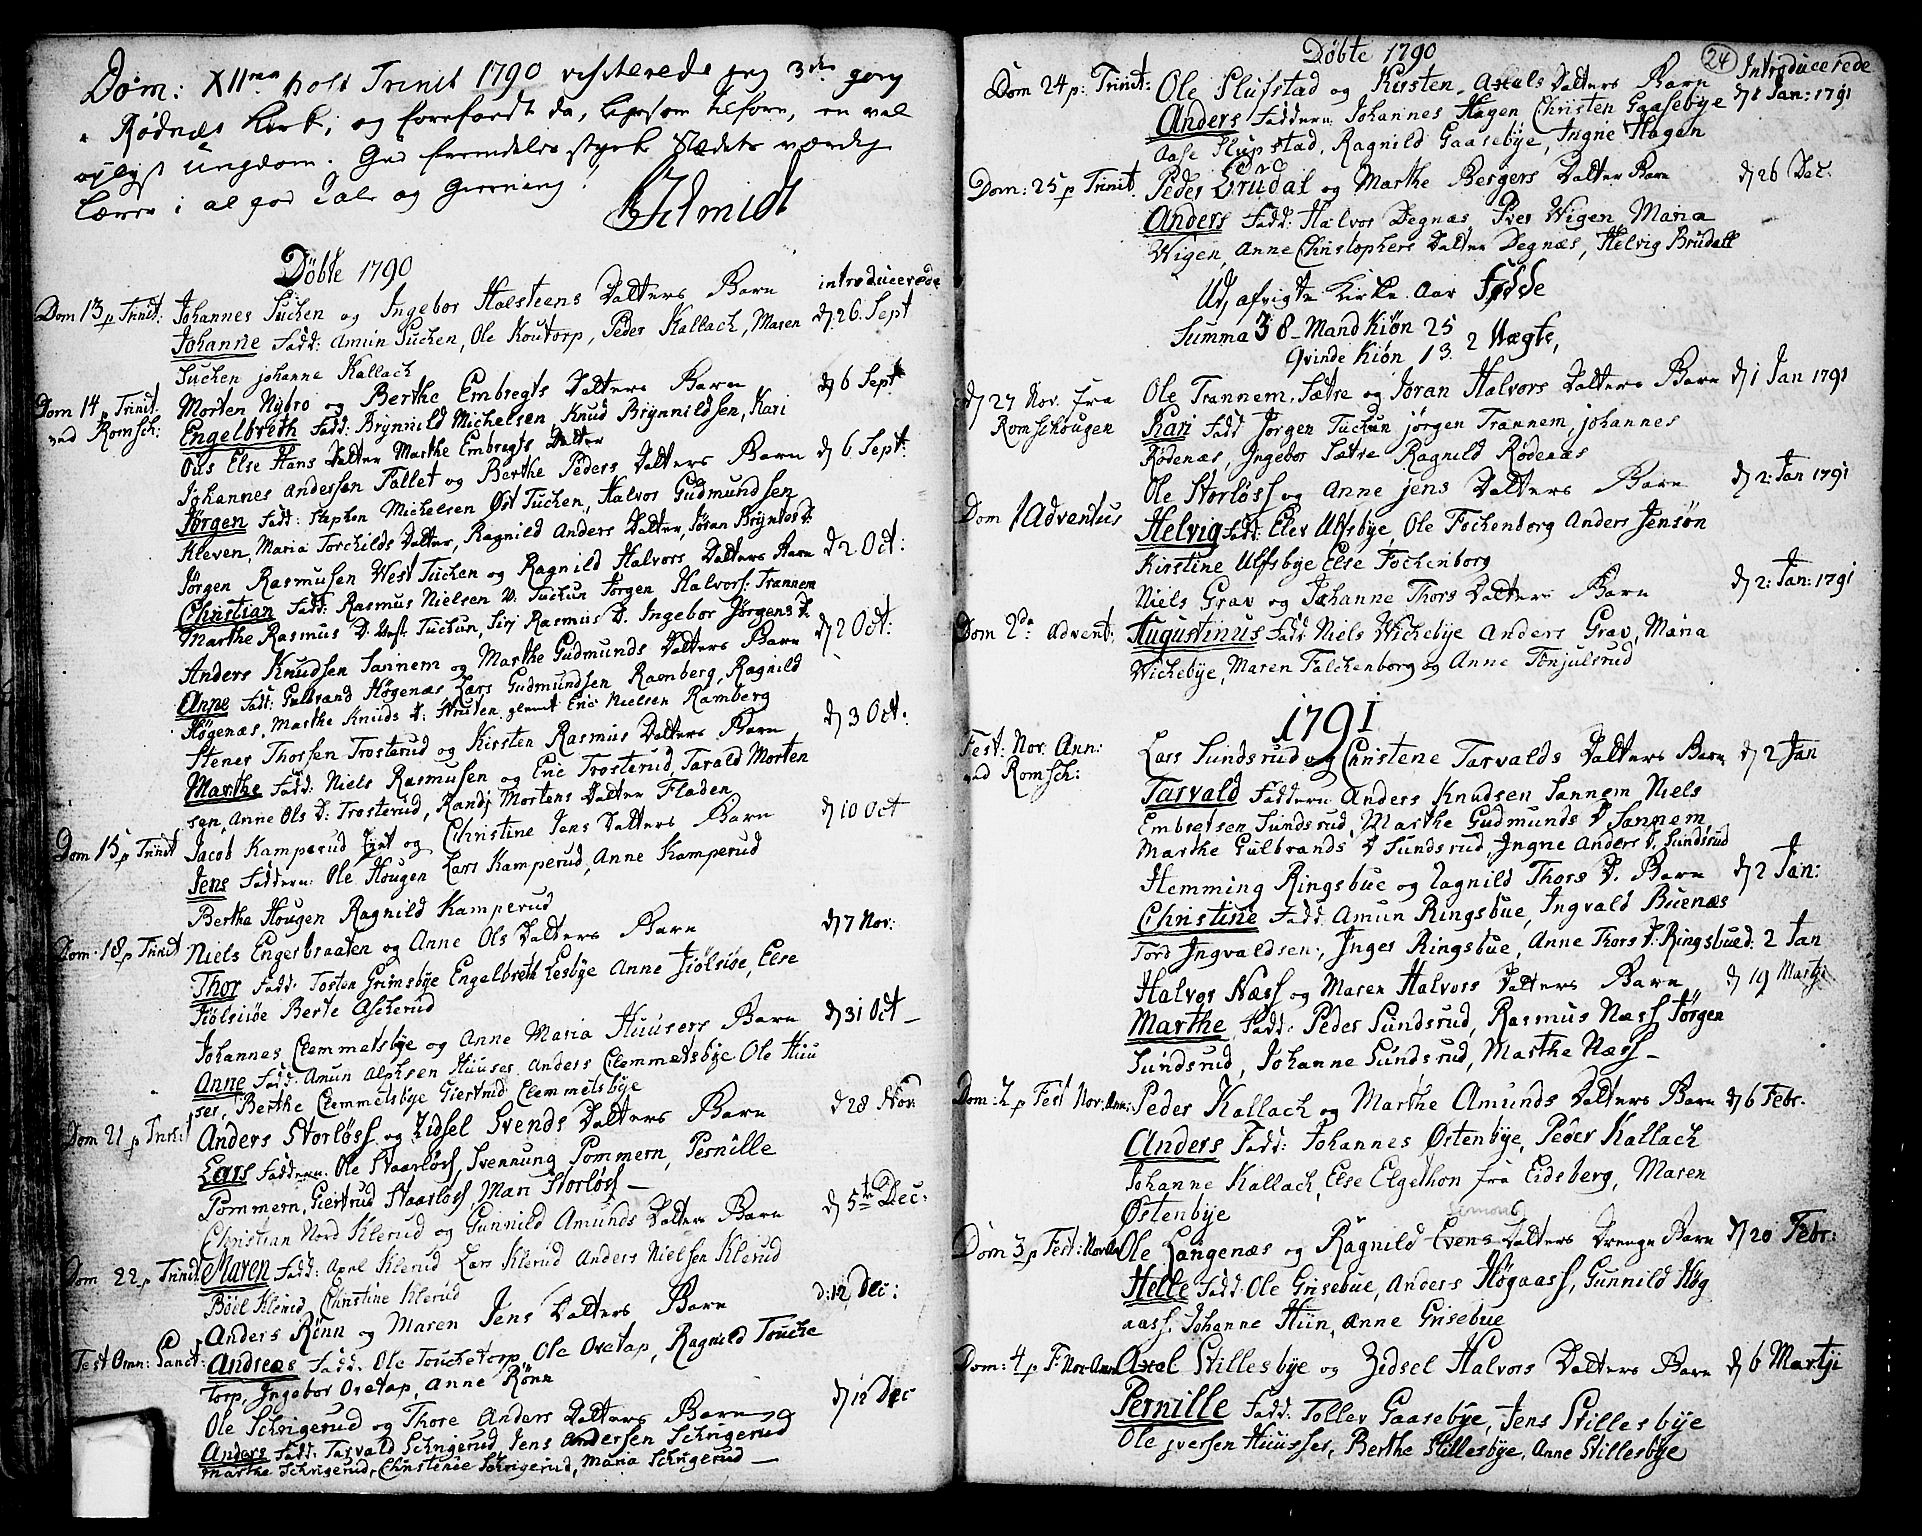 Dom: XII ma post Trinit 1790 visiterede jeg 3die gang
Rødnæs Kirk, og forefandt da, ligesom tilforn, en vel
oplyst Ungdom. Gud fremdeles styrk Stædets værdig
Lærer i al god Tale og Gierning!
Schmidt
Døbte 1790
introducerede
Dom 13 p Trinit: Johannes Tuchen og Ingebor Halsteens Datters Barn
Johanne Fadd: Amun Tuchen, Ole Koutorp, Peder Kallach, Maren d. 26. Sept
Tuchen johanne Kallach
Dom 14 p Trinit. Morten Nybro og Berthe Embregts Datters Barn d 6 Sept
ved Romsch: Engelbreth Fadd: Brynnild Michelsen Knud Brynnildsen, Kari
Ous Else Hans Datter Marthe Embregts Datter
Johannes Anderssen Fallet og Berthe Peders Datters Barn d 6 Sept:
Jørgen Fadd: Stephen Michelsen Øst Tuchen, Halvor Gudmundsen
Kleven, Maria Torchilds Datter, Ragnild Anders Datter, Jøran Bryntes D:
Jørgen Rasmusen West Tuchen og Ragnild Halvors Datters Barn d 2 Oct:
Christian Fadd: Rasmus Nielsen V: Tuchun Jørgen Halvors: Trannem
Marthe Rasmus D. Vest: Tuchun, Siri Rasmus D. Ingebor Jørgens D.
Anders Knudsen Sannem og Marthe Gudmunds Datters Barn d 2 Oct:
Anne Fadd: Gulbrand Høgenæs Lars Gudmundsen Ramberg, Ragnild
Høgenæs, Marthe Knuds D: Struten glemt Eric Nielsen Ramberg
Stener Thorssen Trosterud og Kirsten Rasmus Datters Barn d 3 Oct:
Marthe Fadd: Niels Rasmusen og Eric Trosterud, Tarald Morten
sen, Anne Ols D: Trosterud, Randj Mortens Datter Fladen
Dom 15 p Trinit Jacob Kamperud og Christine Jens Datters Barn d 10 Oct
Jens Faddern: Ole Hougen Lars Kamperud, Anne Kamperud
Bertha Hougen Ragnild Kamperud
Dom. 18 p Trinit Niels Engerbraaten og Anne Ols Datters Barn d 7 Nov:
Thor Fadd: Tosten Grimsbye Engelbreth Lesbye Anne Fiølsiøe, Else
Fiølsiøe Berte Ascherud
Johannes Clemmetsbye og Anne Maria Huusers Barn d 31 Oct
Anne Fadd: Amun Alphsen Huuser Anders Clemmetsbye Ole Huu
ser, Berthe Clemmetsbye Giertrud Clemmetsbye
Dom 21 p Trin:t Anders Storløss og Zidsel Svends Datters Barn d 28 Nov
Lars Faddern: Ole Staarløss, Svennung Pommern, Pernille
Pommern, Giertrud Staarløss, Mari Storløss
Christian Nord Klerud og Gunnild Amunds Datters Barn d 5te Dec:
Dom 22 p Trinit: Maren Fadd: Axel Klerud Lars Klerud Anders Nielsen Klerud
Boel Klerud, Christine Klerud
Anders Rønn og Maren Jens Datters Barn d: 12 Dec:
Fest Omn: Sanct: Andreas Fadd: Ole Touchetorp, Ole Ovetap, Ragnild Touche
torp, Ingebor Ovetap, Anne Rønn
Ole Schrigerud og Thore Anders Datters Barn d 12 Dec
Anders Fadd: Tarvald Schrigerud, Jens Andersen Schrigerud
Marthe Schrigerud, Christense Schrigerud, Maria Schrigerud
Døbte 1790
24
Introducerede
Dom 24 p: Trinit: Ole Slufstad og Kirsten Axels Datters Barn d 1 Jan: 1791
Anders Faddern Johannes Hagen Christen Gaasebye
Aase Slupstad, Ragnild Gaasebye, Ingne Hagen
Dom: 25 p Trinit. Peder Brudal og Marthe Bergers Datter Barn d 26 Dec.
Anders Fadd: Halvor Degnæs, Iver Wigen, Maria
Wigen, Anne Christophers Datter Degnæs, Helvig Brudall
Udj afvigte Kirke Aar Fødde
Summa 38 - Mand Kiøn 25
Qvinde Kiøn 13. 2 Uægte,
d 27 Nov. fra Ole Trannem, Sætre og Jøran Halvors Datters Barn d 1 Jan 1791
Romschougen Kari Fadd Jørgen Tuchun jørgen Trannem, johannes
Rødenæs, Ingebor Sætre Ragnild Rødenæs
Ole Storløss og Anne jens Datters Barn d 2: Jan 1791
Dom 1 Adventus Helvig Fadd: Elev Ulfsbye, Ole Fochenborg Anders Jensøn
Kirstine Ulfsbye Else Fochenborg
Niels Grav og Johanne Thors Datters Barn d 2: Jan: 1791
Dom 2da Advent: Augustinus Fadd Niels Wichebye Anders Grav, Maria
Wichebye, Maren Falchenborg og Anne Tonjulsrud
1791
Fest: Nov. Ann: Lars Sundsrud og Christene Tarvalds Datters Barn d 2 Jan
ved Romsch: Tarvald Faddern Anders Knudsen Sannem Niels
Embretsen Sundsrud, Marthe Gudmunds D Sannem
Marthe Gulbrands D Sundsrud Ingne Anders D. Sundsrud
Hemming Ringsbue og Ragnild Thors D. Barn d 2 Jan:
Christine Fadd: Amun Ringsbue, Ingvald Buenæs
Tord Ingvaldsen, Inger Ringsbue, Anne Thors D. Ringsbue d: 2 Jan
Halvor Næss og Maren Halvors Datters Barn d 19 Martj
Marthe Fadd: Peder Sundsrud, Rasmus Næss Jørgen
Sundsrud, Johanne Sundsrud, Marthe Næss
Dom: 2 p Fest Nov: Ann: Peder Kallach og Marthe Amunds Datters Barn d 6 Febr.
Anders Fadd: Johannes Østenbye, Peder Kallach
Johanne Kallach, Else Elgethon fra Eidsberg, Maren
Østenbye
Simons
Dom 3 p Fest: Nov: Ann Ole Langenæs og Ragnild Evens Datters Drenge Barn d 20 Febr:
Helle Fadd: Ole Grisebue, Anders Høgaass, Gunnild Høg
aass, Johanne Hun, Anne Grisebue
Dom: 4 p F: Nov: Ann Axel Stillesbye og Zidsel Halvors Datters Barn d 6 Martji
Pernille Fadd: Tollev Gaasebye, Jens Stillesbye
Ole jversen Huusser, Berthe Stillesbye, Anne Stillesbye